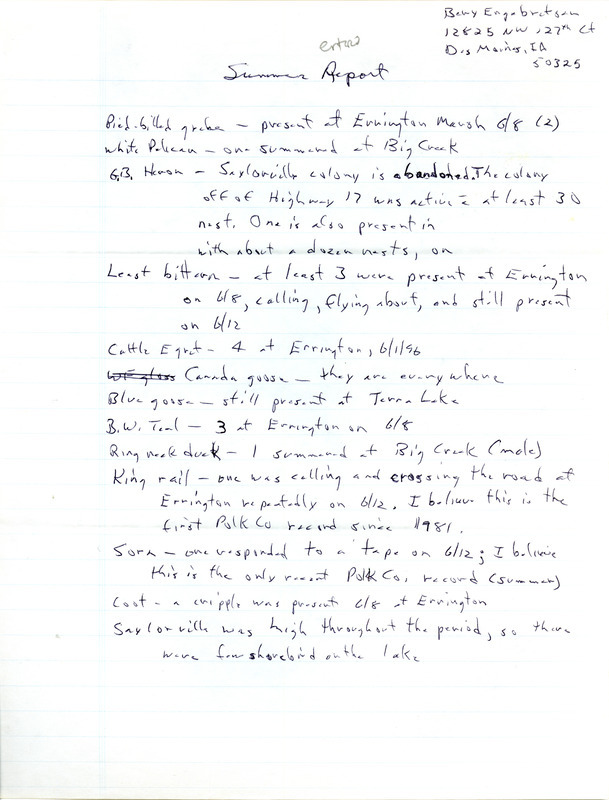 Bery Engebretsen
12825 NW 127th Ct
Des Moines, IA
50325
Summer Report
Pied-billed grebe - present at Errington Marsh 6/8 (2)
White Pelican - one summered at Big Creek
G.B. Heron - Saylorville colony is abandoned. The colony
off of Highway 17 was active - at least 30
nest. One is also present in
with about a dozen nests, on
Least bittern - at least 3 were present at Errington
on 6/8, calling, flying about, and still present
on 6/12
Cattle Egret - 4 at Errington, 6/1/96
Canada goose - they are everywhere
Blue goose - still present at Terra Lake
B.W. Teal - 3 at Errington on 6/8
Ring neck duck - 1 summered at Big Creek (male)
King rail - one was calling and crossing the road at
Errington repeatedly on 6/12. I believe this is the
first Polk Co record since 1981.
Sora - one responded to a tape on 6/12; I believe
this is the only recent Polk Co. record (summer)
Coot - a cripple was present 6/8 at Errington
Saylorville was high throughout the period, so there
were few shorebird on the lake